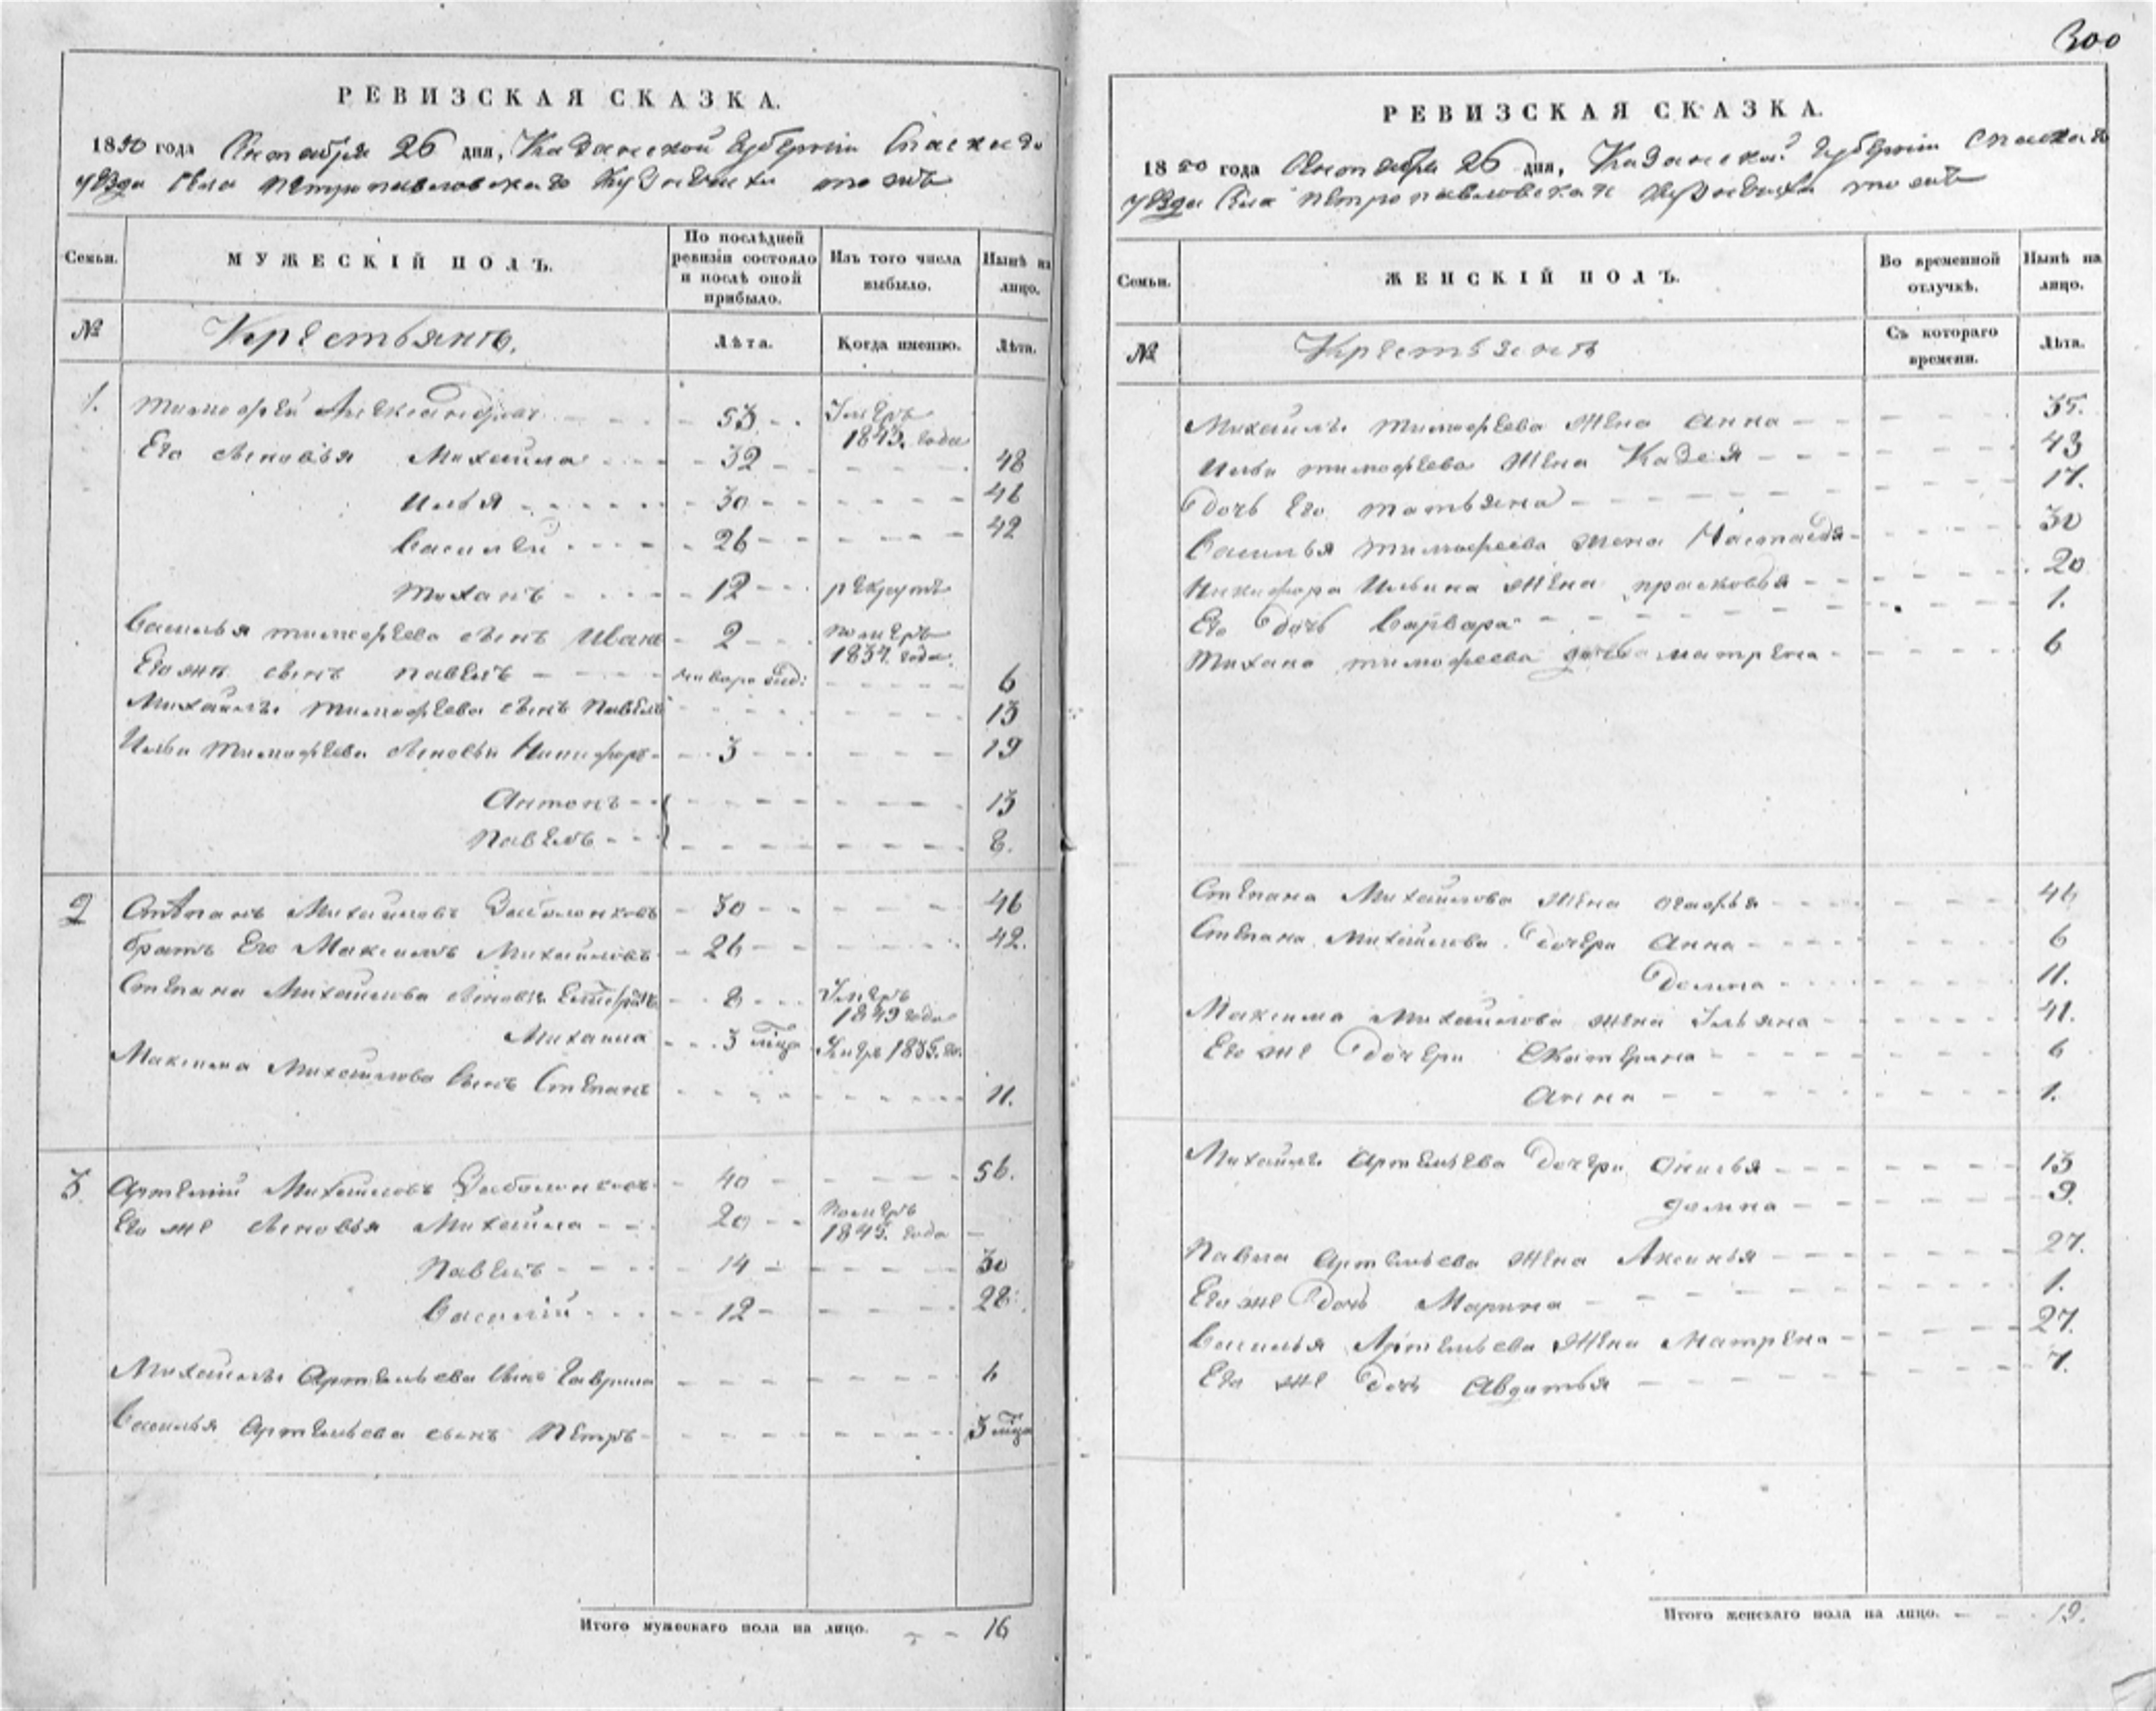 300
РЕВИЗСКАЯ СКАЗКА.
1850 года Октября 26 дня, Казанской Губернiи Спаскаго
уѣзда Села Петропавловскаго
МУЖЕСКIЙ ПОЛЪ.
Семьи.
По послѣдней ревизiи состояло и послѣ оной прибыло.
Изъ того числа выбыло.
Нынѣ на лицо.
№ Крестьянъ. Лѣта. Когда именно. Лѣта.
1. Тимофей Александровъ 53 Умеръ 1843. года
Его Сыновья Михайла 32 48
Илья 30 46
Василей 26 42
12 рекрутъ
Василья Тимофеева сынъ Иванъ 2 померъ 1837. года
Его же сынъ Павелъ 6
Михайлы Тимофеева сынъ Павелъ 13
Ильи Тимофеева Сыновьи Никифоръ 3 19
Антонъ 13
Павелъ 8.
2 Степанъ Михайловъ 30 46
братъ Его Максимъ Михайловъ 26 42.
Степана Михайлова Сыновья 8 Умеръ 1849 года
Михаила 3 мѣца Умеръ 1835. го.
Максима Михайлова Сынъ Степанъ 11.
3. Артемiй Михайловъ 40 56.
Его же Сыновья Михайла 20 померъ 1845. года
Павелъ 14 30
Василiй 12 28.
Михайлы Артемьева Сынъ Гаврила 6
Василья Артемьева сынъ Петръ 3 мѣца
Итого мужескаго пола на лицо. 16
РЕВИЗСКАЯ СКАЗКА.
1850 года Октября 26 дня, Казанской Губернiи Спаскаго
уѣзда Села Петропавловскаго
Семьи.
ЖЕНСКIЙ ПОЛЪ.
Во временной отлучкѣ.
Нынѣ на лицо.
№ Крестьянъ Съ котораго времени. Лѣта.
Михайлы Тимофеева Жена Анна 35.
Ильи Тимофеева Жена 43
Дочь Его Татьяна 17.
Василья Тимофеева жена Настасья 30
Никифора Ильина Жена прасковья 20
Его Дочь Варвара 1.
Тимофеева дочь матрена 6
Степана Михайлова Жена 46
Степана Михайлова Дочери Анна 6
Домна 11.
Максима Михайлова жена Ульяна 41.
Его же Дочери Екатерина 6
Анна 1.
Михайлы Артемьева Дочери 13
домна 9.
Павла Артемьева Жена Аксинья 27.
Его же Дочь Марина 1.
Василья Артемьева Жена Матрена 27.
Его же Дочь Авдотья 7.
Итого женскаго пола на лицо. 19.